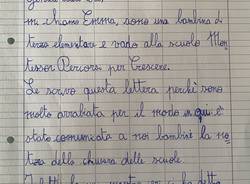 mi chiamo Emma, sono una bambina di
terza elementare e vado alla scuola Mon
tessori Percorsi per Crescere.
Le scrivo questa lettera perché sono
molto arrabbiata per il modo in cui è
stato comunicata a noi bambini la no
tizia della chiusura delle scuole.